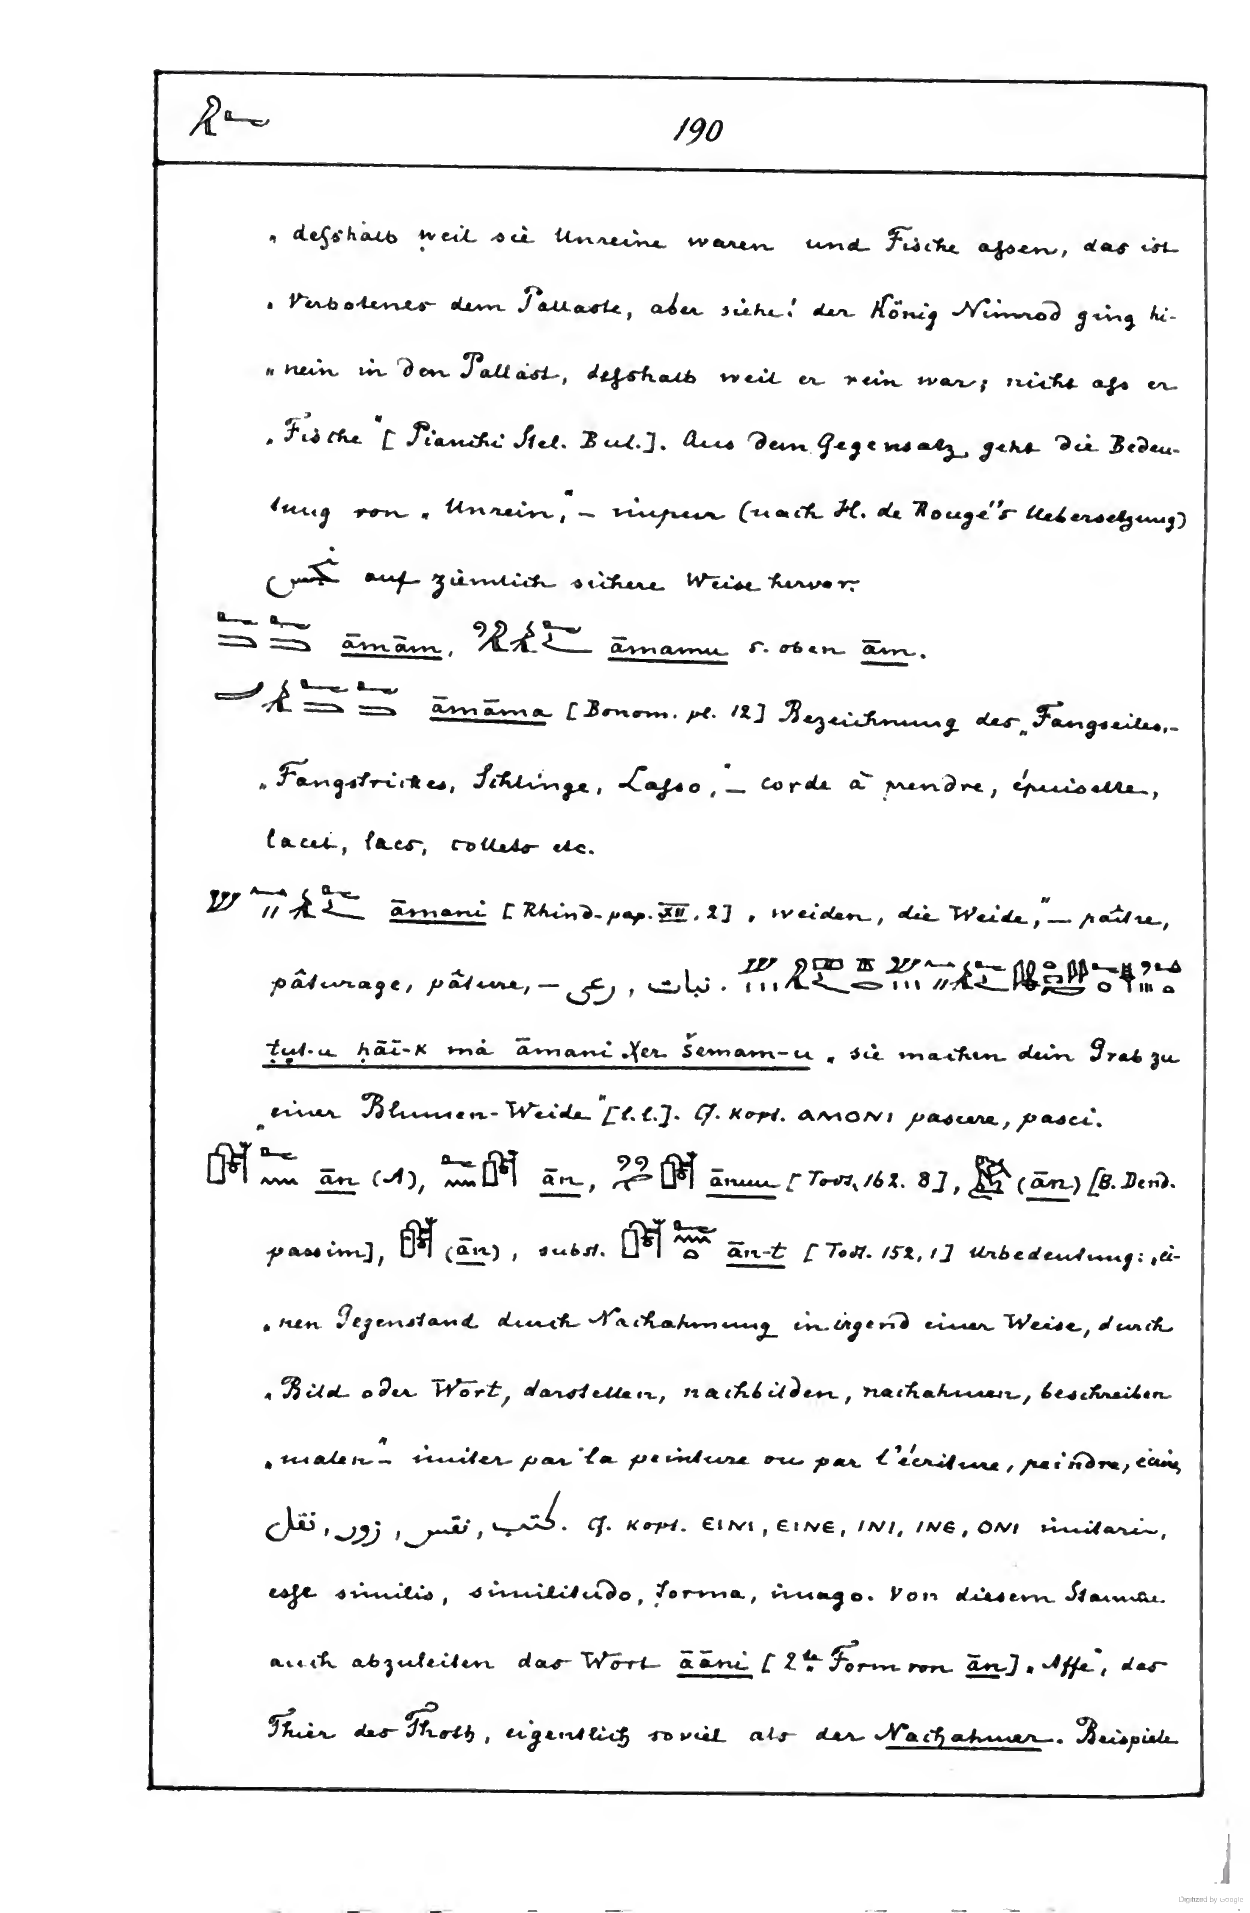 190
„ deſshalb weil sie Unreine waren und Fische aſsen, das ist
„ Verbotenes dem Pallaste, aber siehe! der König Nimrod ging hi-
„ nein in den Pallast, deſshalb weil er rein war; nicht aſs er
„ Fische“ [Pianchi Stel. Bul.]. Aus dem Gegensatz geht die Bedeu-
tung von „Unrein,“ – impur (nach H. de Rougé's Uebersetzung)
auf ziemlich sichere Weise hervor.
āmām, āmamu s. oben ām.
āmāma [Bonom. pl. 12] Bezeichnung des „Fangseiles,-
„Fangstrickes, Schlinge, Laſso,“ – corde à prendre, épuisette,
lacet, lacs, collets etc.
āmani [Rhind-pap. XII, 2] „ weiden, die Weide,“ – paître,
pâturage, pâture, – رعى , نبات .
ṭuṭ-u ḥāī-k má āmani χer šemam-u „ sie machen dein Grab zu
„einer Blumen-Weide“ [l.l.]. Cf. Kopt. ⲀⲘⲞⲚⲒ pascere, pasci.
ān (A), ān, ānnu [Todt. 162. 8], (ān) [B. Dend.
passim], (ān), subst. ān-t [Todt. 152, 1] Urbedeutung: „ei-
„nen Gegenstand durch Nachahmung in irgend einer Weise, durch
„Bild oder Wort, darstellen, nachbilden, nachahmen, beschreiben
„malen“ – imiter par la peinture ou par l'écriture, peindre,
كتب , نقس , زور , نقل . Cf. Kopt. ⲈⲒⲚⲒ, ⲈⲒⲚⲈ, ⲒⲚⲒ, ⲒⲚⲈ, ⲞⲚⲒ imitari,
eſse similis, similitudo, forma, imago. Von diesem Stamme
auch abzuleiten das Wort āāni [2te Form von ān] „Affe“, das
Thier des Thoth, eigentlich soviel als der Nachahmer. Beispiele
Digitized by Google